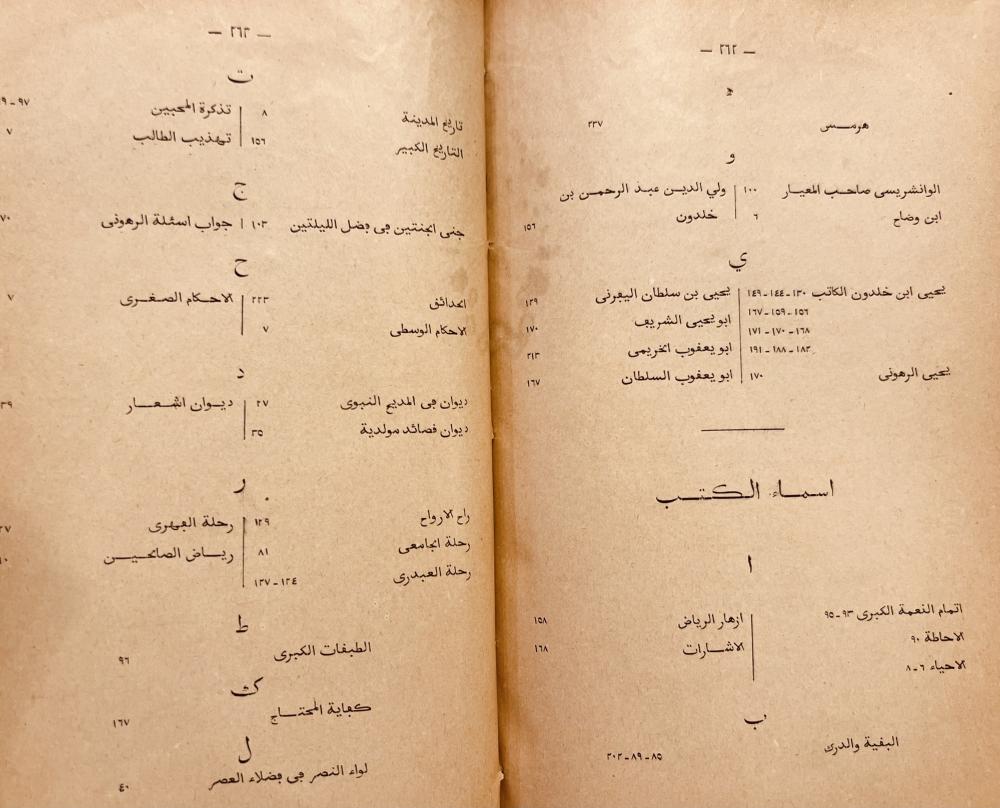 — ٢٦٢ —
ه
هرمــس ٢٣٧
و
الوانشريسى صاحب المعيار ١٠٠
ابن وضاح ٦
ولي الدين عبد الرحمن بن
خلدون ١٥٦
ي
يحيى ابن خلدون الكاتب ١٣٠-١٤٤-١٤٩
١٥٦-١٥٩-١٦٧
١٦٨-١٧٠-١٧١
١٨٣-١٨٨-١٩١
يحيى الرهونى ١٧٠
يحيى بن سلطان اليفرنى ١٣٩
ابو يحيى الشريف ١٧٠
ابو يعقوب الخريمى ٢١٣
ابو يعقوب السلطان ١٦٧
اسماء الكتب
ا
اتمام النعمة الكبرى ٩٣-٩٥
الاحاطة ٩٠
الاحياء ٦-٨
ازهار الرياض ١٥٨
الاشارات ١٦٨
ب
البغية والدرك ٨٥-٨٩-٢٠٢
— ٢٦٣ —
ت
تاريخ المدينة ٨
التاريخ الكبير ١٥٦
تذكرة المحبين ٩٧-٩
تهذيب الطالب ٧
ج
جنى الجنتين فى فضل الليلتين ١٠٣
جواب اسئلة الرهونى ٧٠
ح
الحدائق ٢٢٣
الاحكام الوسطى ٧
الاحكام الصغرى ٧
د
ديوان فى المديح النبوى ٢٧
ديوان قصائد مولدية ٣٥
ديوان اشعار ٣٩
ر
راح الارواح ١٢٩
رحلة الجامعى ٨١
رحلة العبدرى ١٢٤-١٢٧
رحلة الفهرى ٢٧
رياض الصالحين ١٠
ط
الطبقات الكبرى ٩٦
ك
كفاية المحتاج ١٦٧
ل
لواء النصر فى فضلاء العصر ٤٠